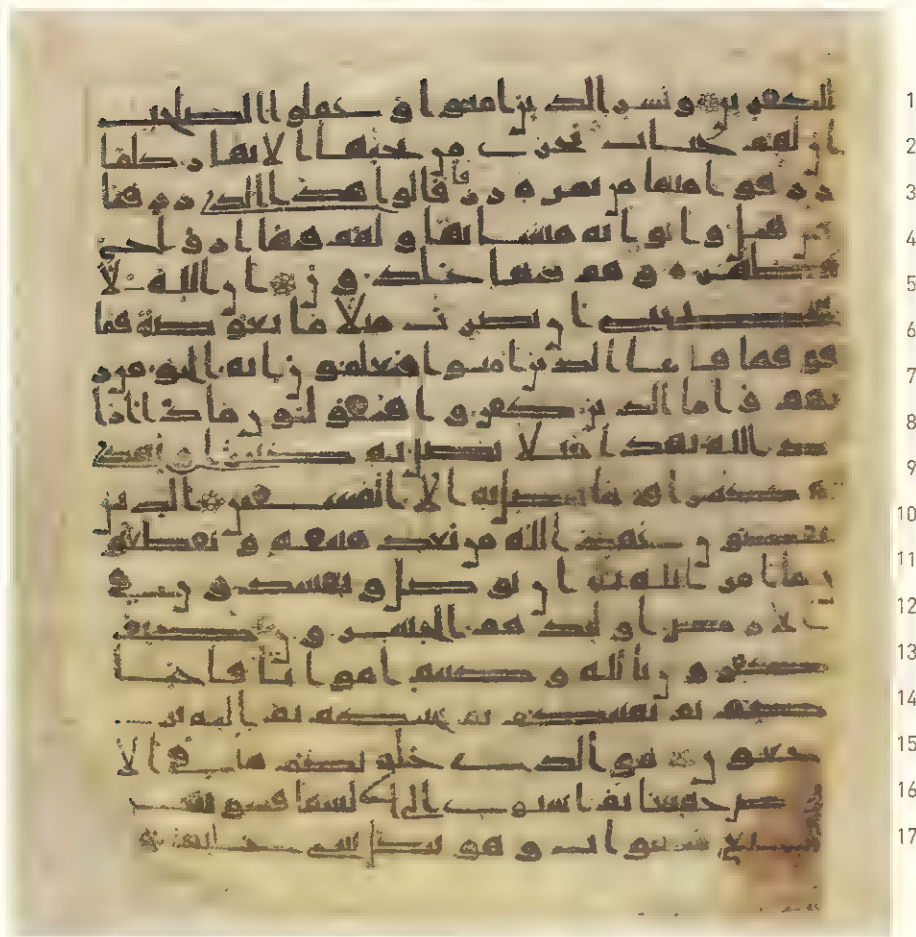 للكفرين وبشر الذين امنوا وعملوا الصلحت 1
ان لهم جنات تجري من تحتها الانهار كلما 2
رزقوا منها من ثمرة رزقا قالوا هذا الذي رزقنا 3
من قبل واتوا به متشابها ولهم فيها ازوج 4
مطهرة وهم فيها خلدون ان الله لا 5
يستحيي ان يضرب مثلا ما بعوضة فما 6
فوقها فاما الذين امنوا فيعلمون انه الحق من ر 7
بهم واما الذين كفروا فيقولون ماذا ارا 8
د الله بهذا مثلا يضل به كثيرا ويهدي 9
به كثيرا وما يضل به الا الفسقين الذين 10
ينقضون عهد الله من بعد ميثقه ويقطعون 11
ما امر الله به ان يوصل ويفسدون في 12
الارض اوليك هم الخسرون كيف 13
تكفرون بالله وكنتم امواتا فاحيا 14
كم ثم يميتكم ثم يحييكم ثم اليه تر 15
جعون هو الذي خلق لكم ما في الا 16
رض جميعا ثم استوى الى السما فسويهن 17
سبع سموات وهو بكل شي عليم